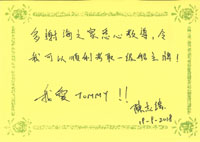 多謝海文窗悉心教導，令
我可以順利考取一級船主牌！
我愛 TOMMY !!
陳志鴻
18-5-2018